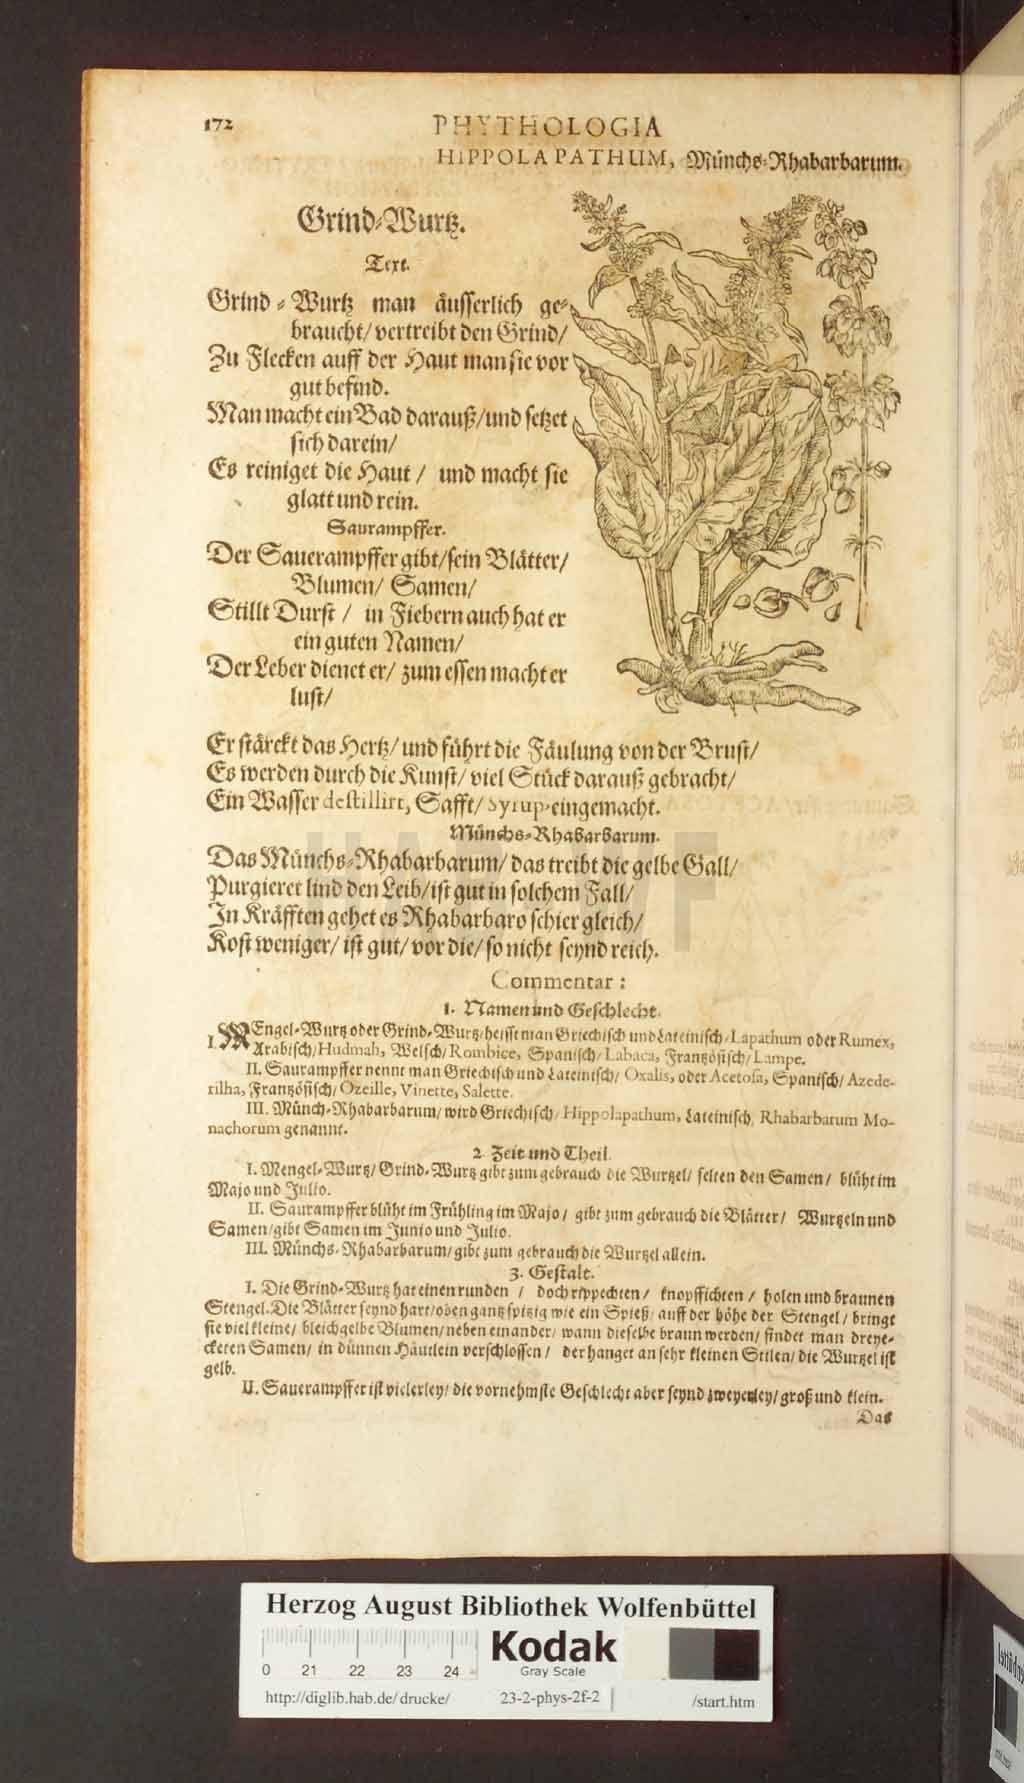 172
PHYTHOLOGIA
HIPPOLAPATHUM, Münchs-Rhabarbarum.
Grind-Wurtz.
Text.
Grind-Wurtz man äusserlich ge-
braucht/ vertreibt den Grind/
Zu Flecken auff der Haut man sie vor
gut befind.
Man macht ein Bad darauß/ und setzet
sich darein/
Es reiniget die Haut/ und macht sie
glatt und rein.
Saurampffer.
Der Sauerampffer gibt/ sein Blätter/
Blumen/ Samen/
Stillt Durst/ in Fiebern auch hat er
ein guten Namen/
Der Leber dienet er/ zum essen macht er
lust/
Er stärckt das Hertz/ und führt die Fäulung von der Brust/
Es werden durch die Kunst/ viel Stück darauß gebracht/
Ein Wasser destillirt, Safft/ Syrup-eingemacht.
Münchs-Rhabarbarum.
Das Münchs-Rhabarbarum/ das treibt die gelbe Gall/
Purgieret lind den Leib/ ist gut in solchem Fall/
In Kräfften gehet es Rhabarbaro schier gleich/
Kost weniger/ ist gut/ vor die/ so nicht seynd reich.
Commentar:
1. Namen und Geschlecht.
I. MEngel-Wurtz oder Grind-Wurtz/ heisse man Griechisch und Lateinisch/ Lapathum oder Rumex,
Arabisch/ Hudmah, Welsch/ Rombice, Spanisch/ Labaca, Frantzösisch/ Lampe.
II. Saurampffer nennt man Griechisch und Lateinisch/ Oxalis, oder Acetosa, Spanisch/ Azede-
rilha, Frantzösisch/ Ozeille, Vinette, Salette.
III. Münch-Rhabarbarum/ wird Griechisch/ Hippolapathum, Lateinisch/ Rhabarbarum Mo-
nachorum genannt.
2. Zeit und Theil.
I. Mengel-Wurtz/ Grind-Wurtz gibt zum gebrauch die Wurtzel/ selten den Samen/ blüht im
Majo und Julio.
II. Saurampffer blüht im Frühling im Majo/ gibt zum gebrauch die Blätter/ Wurtzeln und
Samen/ gibt Samen im Junio und Julio.
III. Münchs-Rhabarbarum/ gibt zum gebrauch die Wurtzel allein.
3. Gestalt.
I. Die Grind-Wurtz hat einen runden/ doch rippechten/ knopffichten/ holen und braunen
Stengel. Die Blätter seynd hart/ oben gantz spitzig wie ein Spieß/ auff der höhe der Stengel/ bringt
sie viel kleine/ bleichgelbe Blumen/ neben einander/ wann dieselbe braun werden/ findet man dreye-
cketen Samen/ in dünnen Häutlein verschlossen/ der hanget an sehr kleinen Stilen/ die Wurtzel ist
gelb.
II. Sauerampffer ist vielerley/ die vornehmste Geschlecht aber seynd zweyerley/ groß und klein.
Das
HAB WF
Herzog August Bibliothek Wolfenbüttel
0 21 22 23 24
Kodak
Gray Scale
http://diglib.hab.de/drucke/ 23-2-phys-2f-2 /start.htm